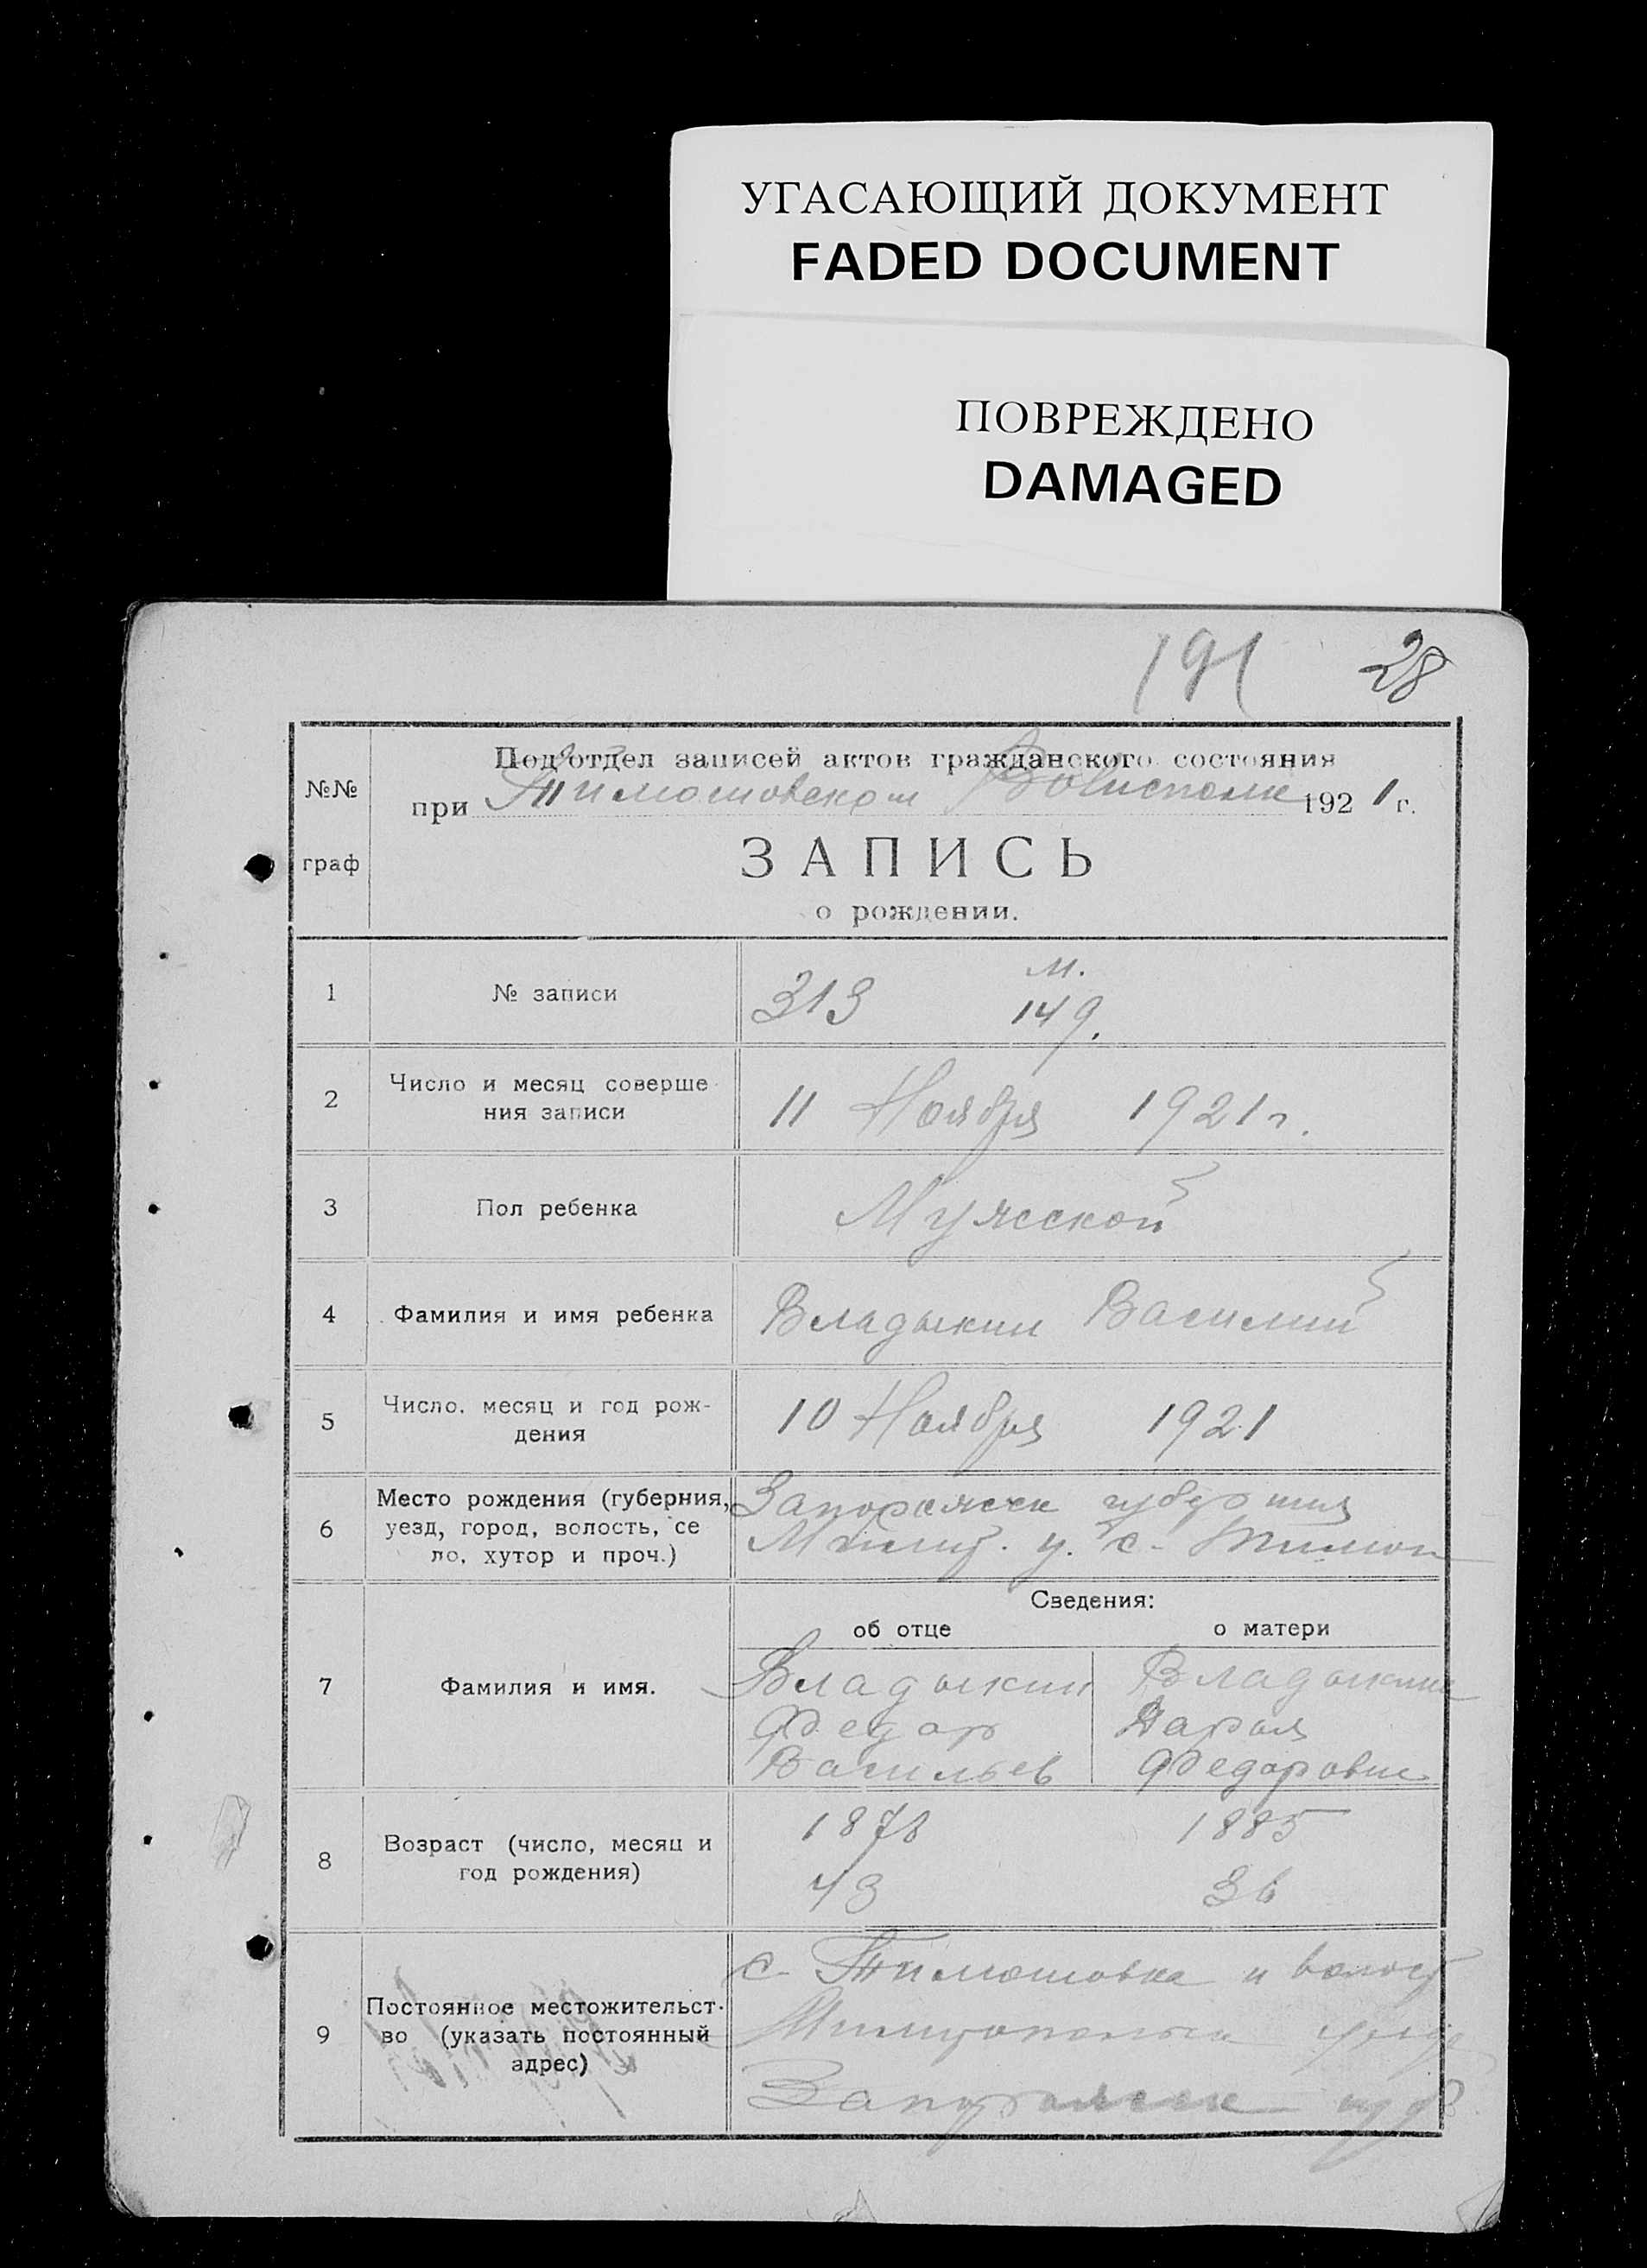 УГАСАЮЩИЙ ДОКУМЕНТ
FADED DOCUMENT
ПОВРЕЖДЕНО
DAMAGED
191 28
№№ граф
Подотдел записей актов гражданского состояния
при Тимошовском Волисполк 1921 г.
ЗАПИСЬ
о рождении.
1 № записи 313 м. 149.
2 Число и месяц соверше
ния записи 11 Ноября 1921 г.
3 Пол ребенка Мужской
4 Фамилия и имя ребенка Владыкин Василий
5 Число, месяц и год рож-
дения 10 Ноября 1921
6 Место рождения (губерния,
уезд, город, волость, се
ло, хутор и проч.)
Запорожск губерния
Мелит. у. с. Тимош
Сведения:
об отце о матери
7 Фамилия и имя.
Владыкин Владыкина
Федор Дарья
Васильев Федоровна
8 Возраст (число, месяц и
год рождения)
1878 1885
43 36
9 Постоянное местожительст-
во (указать постоянный
адрес)
с. Тимошовка и волост
Мелитопольск уезд
Запорожск губ